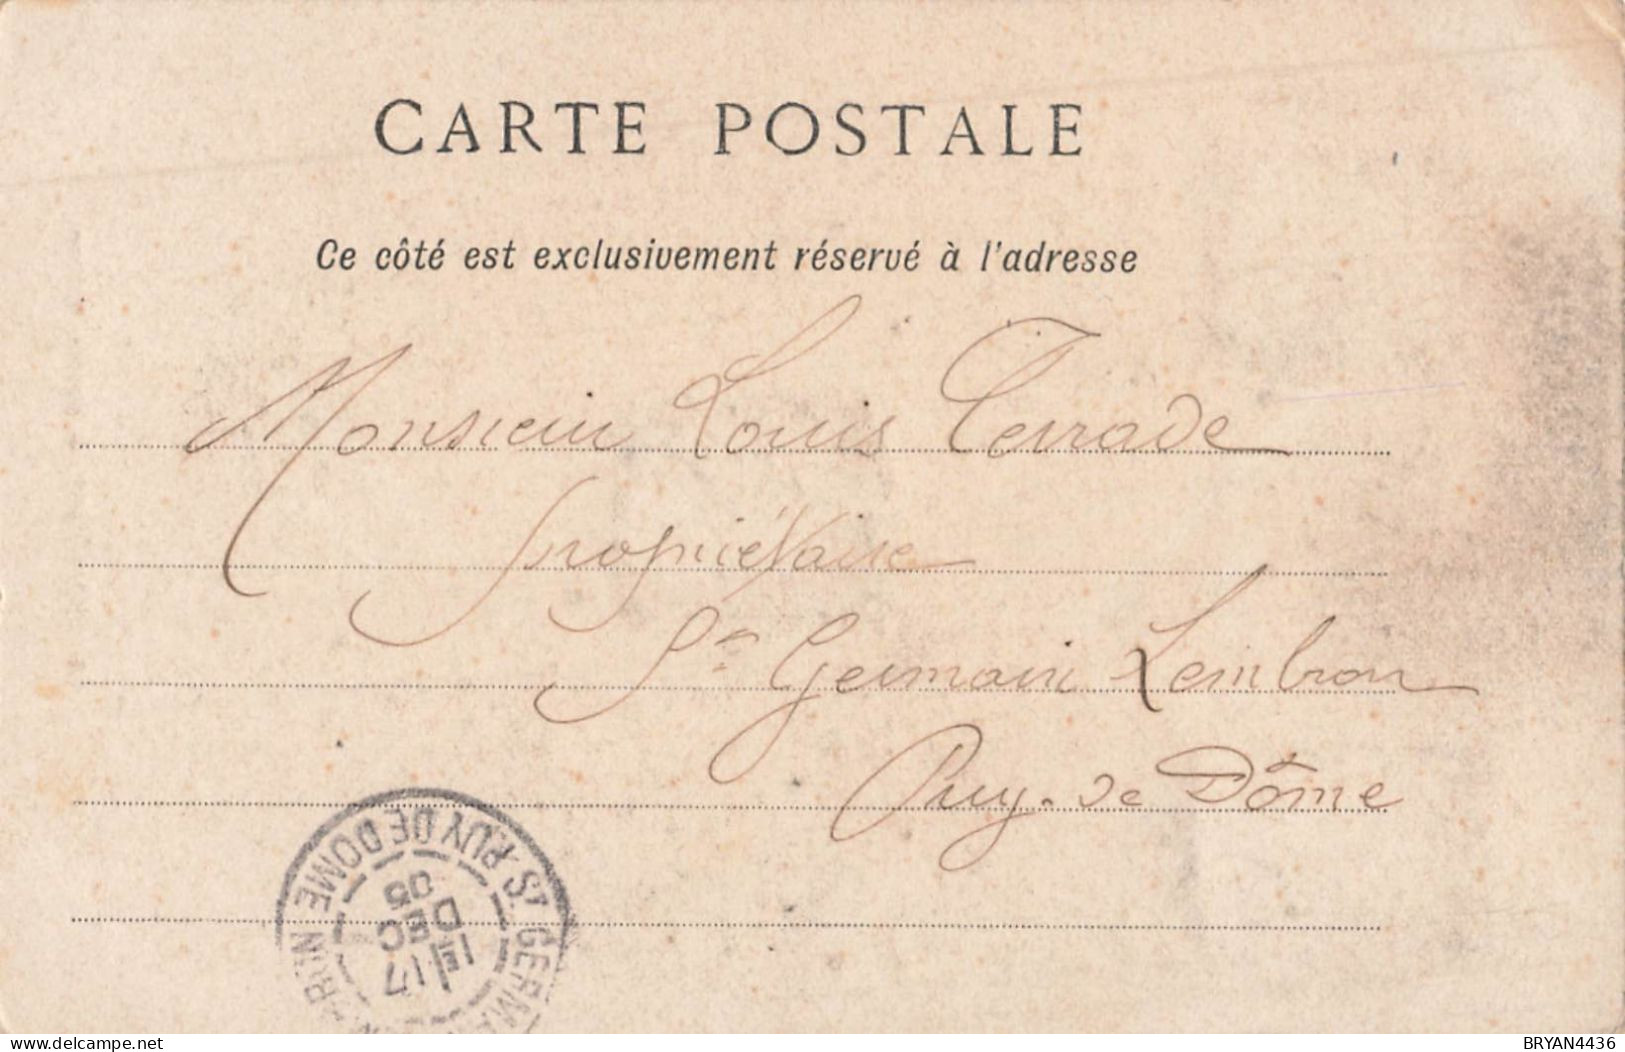 CARTE POSTALE
Ce côté est exclusivement réservé à l'adresse
Monsieur Louis Terrade
propriétaire
St Germain Lembron
Puy-de Dôme
ST GERM
BRON
PUY DE DOME
1E
17
DEC
05
delcampe.net
BRYAN4436